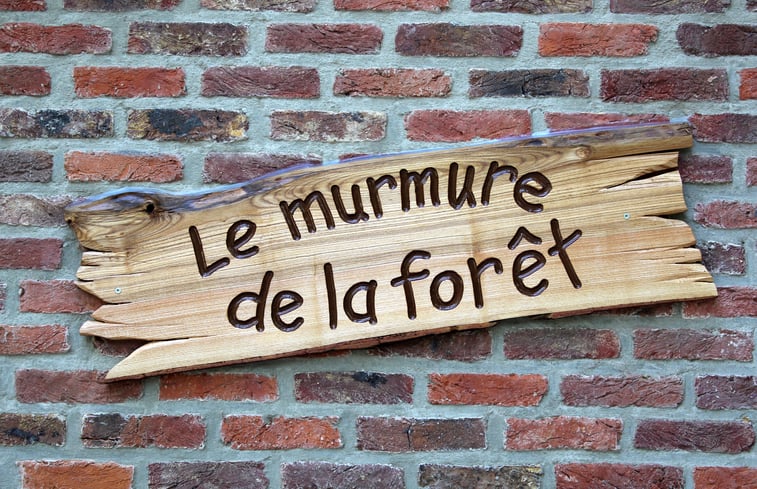 Le murmure
de la forêt